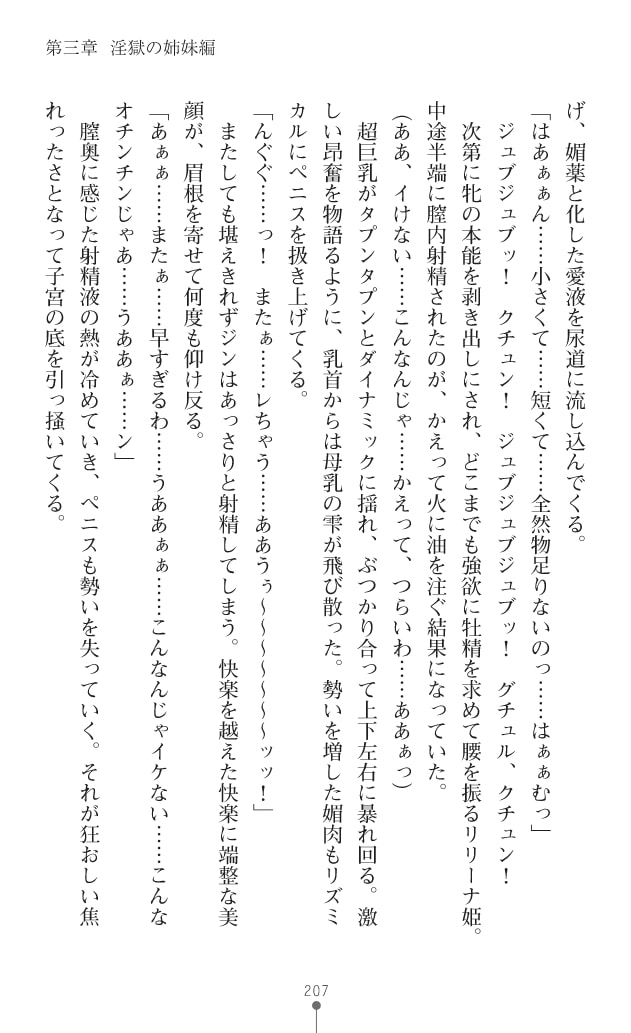 第三章 淫獄の姉妹編
げ、媚薬と化した愛液を尿道に流し込んでくる。
「はあぁぁん……小さくて……短くて……全然物足りないのっ……はぁぁむっ」
ジュブジュブッ！ クチュン！ ジュブジュブジュブッ！ グチュル、クチュン！
次第に牝の本能を剥き出しにされ、どこまでも強欲に牡精を求めて腰を振るリリーナ姫。
中途半端に膣内射精されたのが、かえって火に油を注ぐ結果になっていた。
(ああ、イけない……こんなんじゃ……かえって、つらいわ……ああぁっ)
超巨乳がタプンタプンとダイナミックに揺れ、ぶつかり合って上下左右に暴れ回る。激
しい昂奮を物語るように、乳首からは母乳の雫が飛び散った。勢いを増した媚肉もリズミ
カルにペニスを扱き上げてくる。
「んぐぐ……っ！ またぁ……レちゃう……ああうぅ～～～～～～～ッッ！」
またしても堪えきれずジンはあっさりと射精してしまう。快楽を越えた快楽に端整な美
顔が、眉根を寄せて何度も仰け反る。
「あぁぁ……またぁ……早すぎるわ……うああぁぁ……こんなんじゃイケない……こんな
オチンチンじゃあ……うああぁ……ン」
膣奥に感じた射精液の熱が冷めていき、ペニスも勢いを失っていく。それが狂おしい焦
れったさとなって子宮の底を引っ掻いてくる。
207